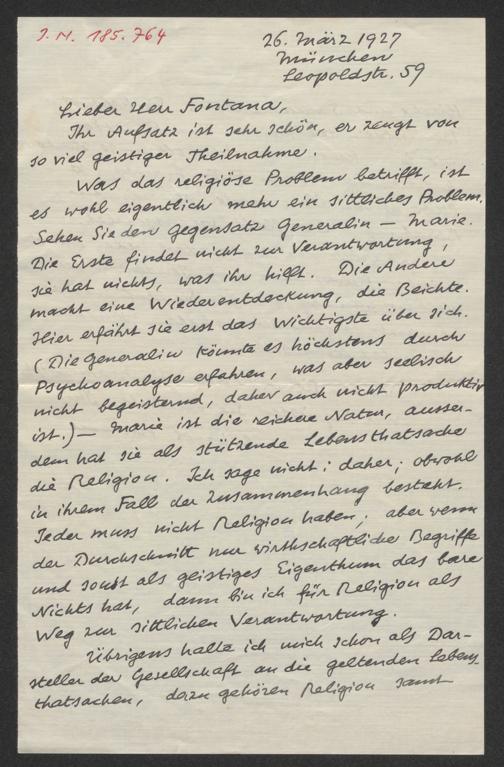 I. N. 185.764
26. März 1927
München
Leopoldstr. 59
Lieber Herr Fontana,
Ihr Aufsatz ist sehr schön, er zeugt von
so viel geistiger Theilnahme.
Was das religiöse Problem betrifft, ist
es wohl eigentlich mehr ein sittliches Problem.
Sehen Sie den Gegensatz Generalin — Marie.
Die Erste findet nicht zur Verantwortung,
sie hat nichts, was ihr hilft. Die Andere
macht eine Wiederentdeckung, die Beichte.
Hier erfährt sie erst das Wichtigste über sich.
(Die Generalin könnte es höchstens durch
Psychoanalyse erfahren, was aber seelisch
nicht begeisternd, daher auch nicht produktiv
ist.) — Marie ist die reichere Natur, ausser-
dem hat sie als stützende Lebensthatsache
die Religion. Ich sage nicht: daher; obwohl
in ihrem Fall der Zusammenhang besteht.
Jeder muss nicht Religion haben; aber wenn
der Durchschnitt nur wirthschaftliche Begriffe
und sonst als geistiges Eigenthum das bare
Nichts hat, dann bin ich für Religion als
Weg zur sittlichen Verantwortung.
Übrigens halte ich mich schon als Dar-
steller der Gesellschaft an die geltenden Lebens-
thatsachen, dazu gehören Religion samt